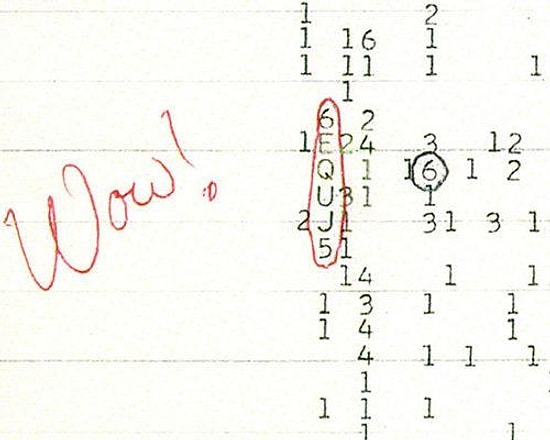 1 2
1 16 1
1 11 1 1
1
6 2
1 E24 3 12
Wow! Q 1 16 1 2
U31 1
2 J1 31 3 1
51
14 1 1
1 3 1 1
1 4 1
4 1 1 1
1
1 1 1
1 1